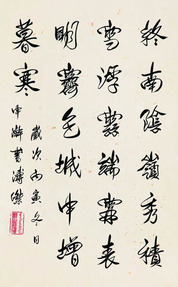 終南陰嶺秀積
雪浮雲端霖表
明霽色城中增
暮寒
歲次丙寅冬日
書溥傑